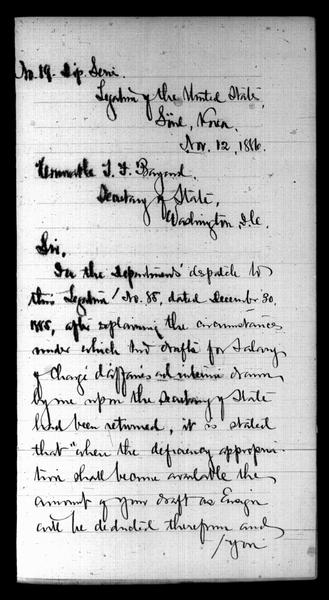 No. 19. Dip. Serie.
Legation of the United States
Söul, Korea.
Nov. 12, 1886.
Honorable T. F. Bayard.
Secretary of State,
Washington, D.C.
Sir,
In the Departments' dispatch to
this Legation No. 35, dated December 30,
1885, after explaining the circumstances
under which two drafts for Salary
of Chargé d'affaires ad interim drawn
by me upon the Secretary of State
had been returned, it is stated
that "when the deficiency appropria-
tion shall become available the
amount of your draft as Ensign
will be deducted therefrom and
/ you